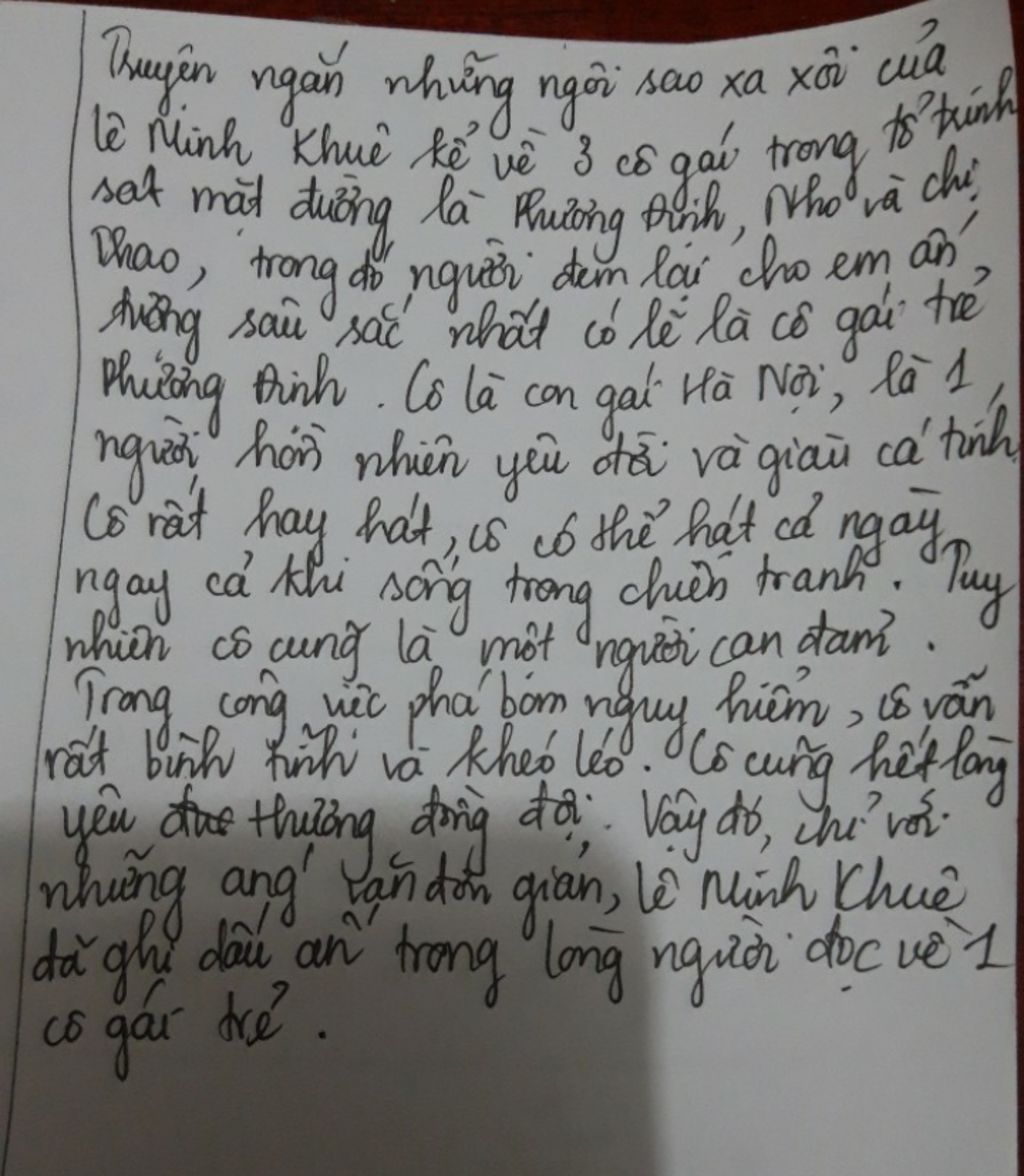 Truyện ngắn những ngôi sao xa xôi của
Lê Minh Khuê kể về 3 cô gái trong tổ trinh
sát mặt đường là Phương Định, Nho và chị
Thao, trong đó người đem lại cho em ấn
tượng sâu sắc nhất có lẽ là cô gái trẻ
Phương Định. Cô là con gái Hà Nội, là 1
người hồn nhiên yêu đời và giàu cá tính
Cô rất hay hát, cô có thể hát cả ngày
ngay cả khi sống trong chiến tranh. Tuy
nhiên cô cũng là một người can đảm.
Trong công việc phá bom nguy hiểm, cô vẫn
rất bình tĩnh và khéo léo. Cô cũng hết lòng
yêu thương đồng đội. Vậy đó, chỉ với
những áng văn đơn giản, Lê Minh Khuê
đã ghi dấu ấn trong lòng người đọc về 1
cô gái trẻ.